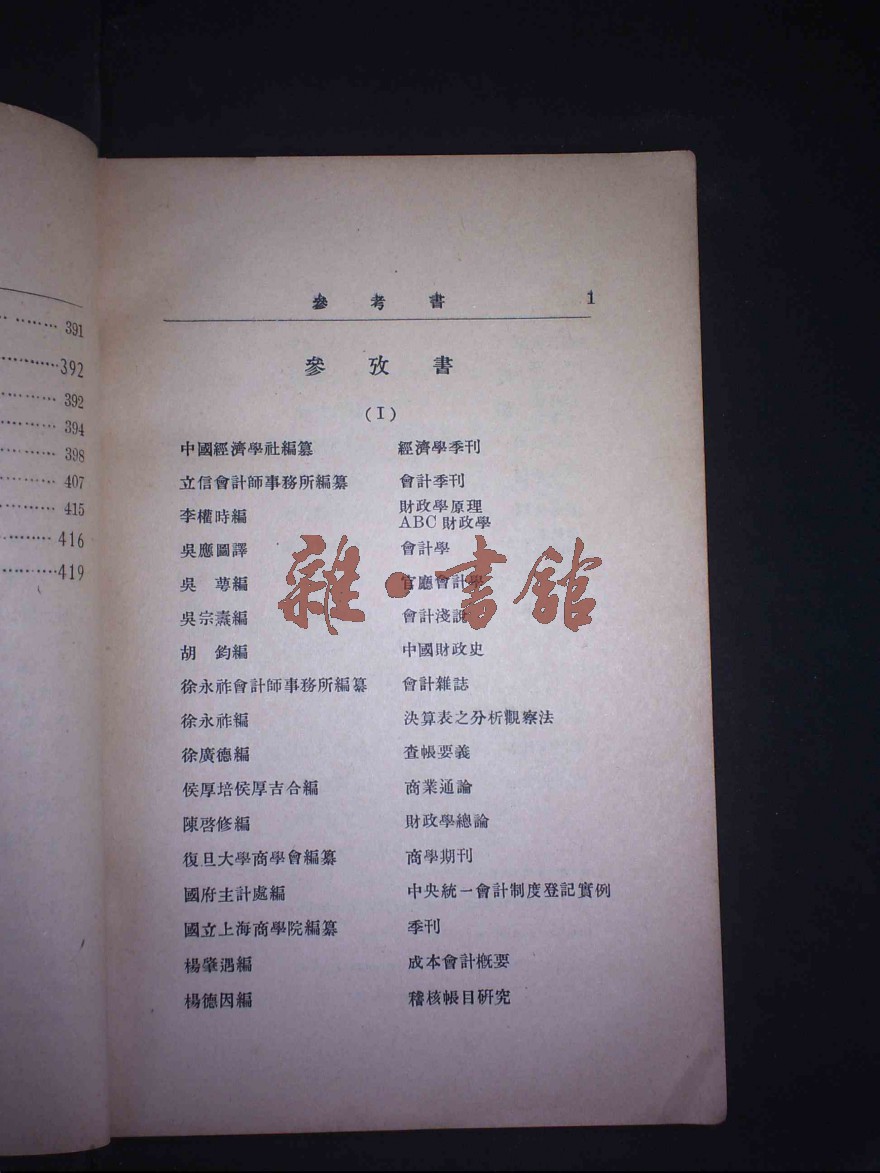 391
392
392
394
398
407
415
416
419
參考書 1
參攷書
(I)
中國經濟學社編纂 經濟學季刊
立信會計師事務所編纂 會計季刊
李權時編 財政學原理
ABC財政學
吳應圖譯 會計學
吳蕚編 官廳會計學
吳宗燾編 會計淺說
胡鈞編 中國財政史
徐永祚會計師事務所編纂 會計雜誌
徐永祚編 決算表之分析觀察法
徐廣德編 查帳要義
侯厚培侯厚吉合編 商業通論
陳啓修編 財政學總論
復旦大學商學會編纂 商學期刊
國府主計處編 中央統一會計制度登記實例
國立上海商學院編纂 季刊
楊肇遇編 成本會計槪要
楊德因編 稽核帳目研究
雜·書館